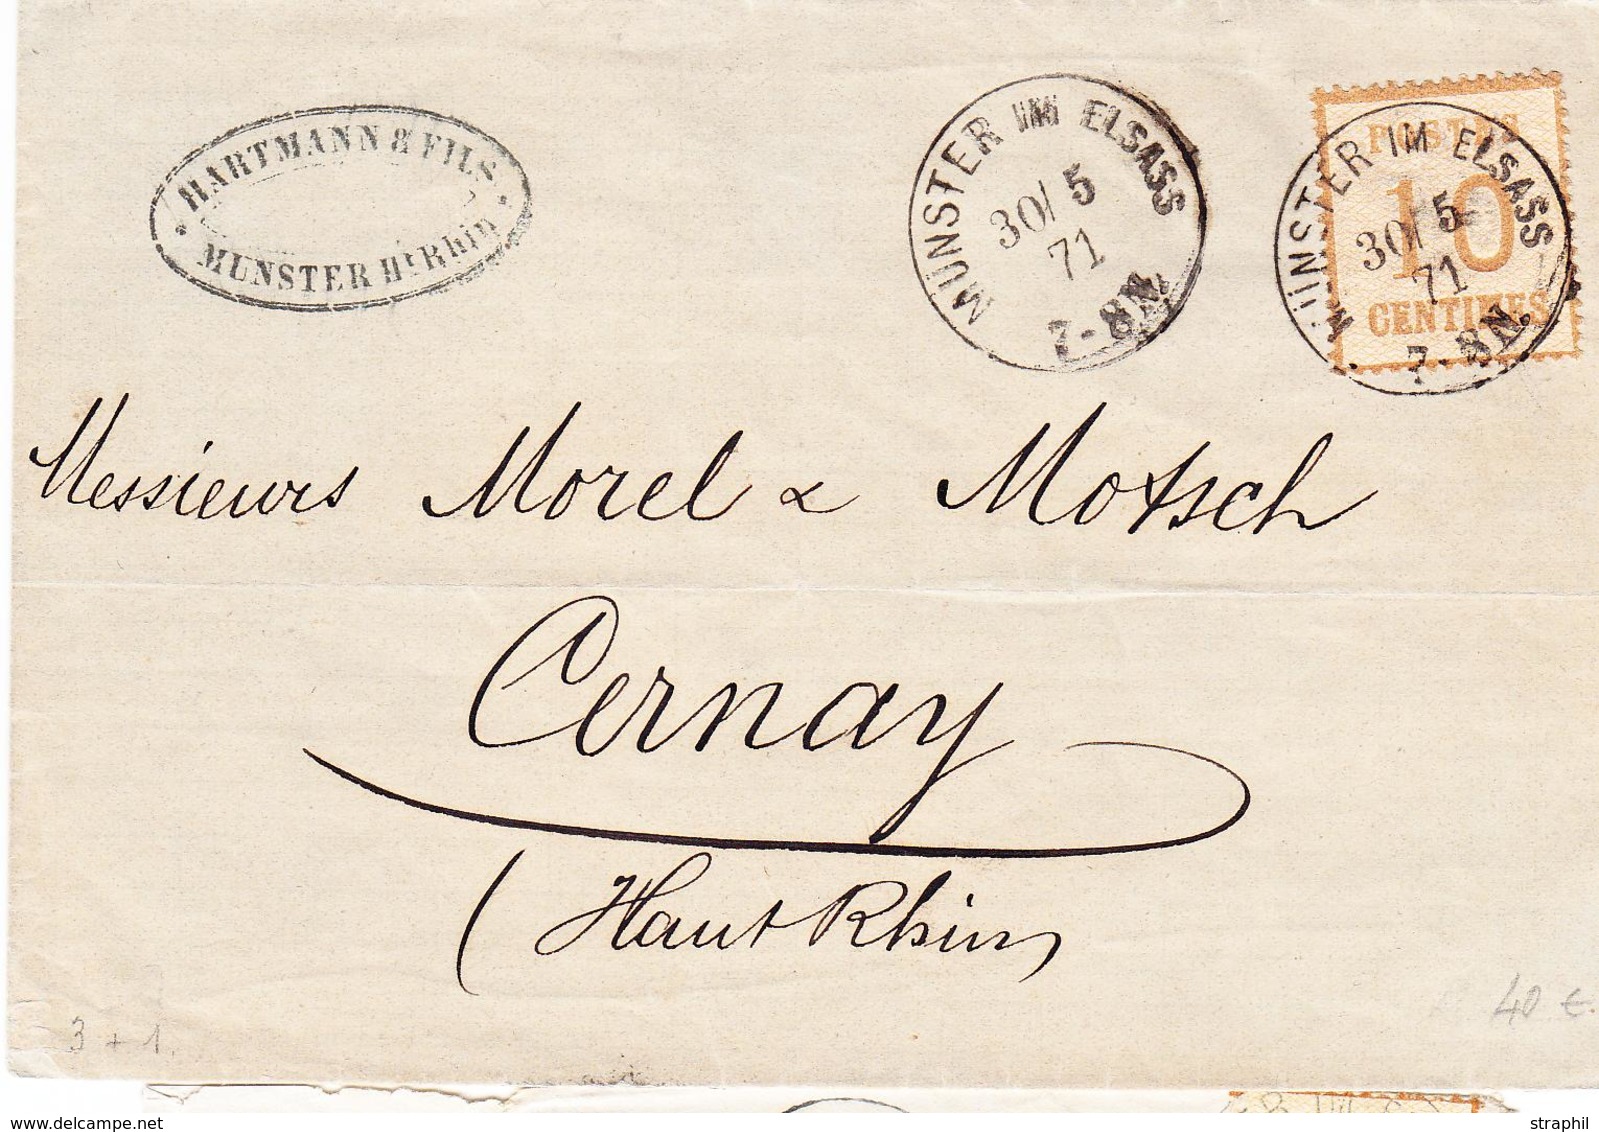 HARTMANN & FILS
MUNSTER Ht Rhin
MÜNSTER IM ELSASS
30/5
71
7-8N.
POSTES
10
CENTIMES
MÜNSTER IM ELSASS
30/5
71
7-8N.
Messieurs Morel & Motsch
Cernay
(Haut Rhin)
3 + 1.
40 €.
STRAPHIL